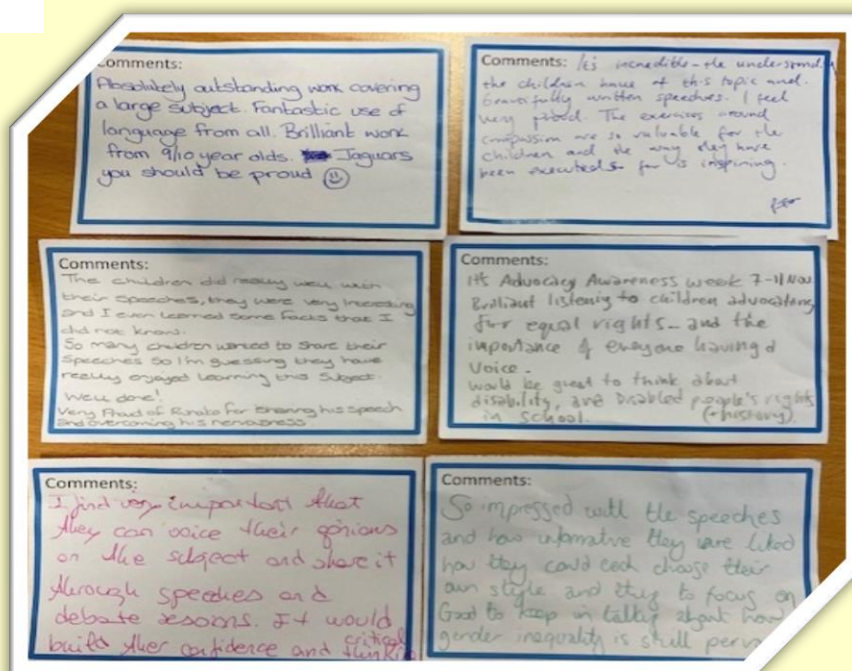 Comments:
Absolutely outstanding work covering
a large subject. Fantastic use of
language from all. Brilliant work
from 9/10 year olds. Jaguars
you should be proud ☺
Comments: It's incredible - the understanding
the children have of this topic and.
beautifully written speeches. I feel
very proud. The exercises around
compassion are so valuable for the
children and the way they have
been executed so far is inspiring.
Comments:
The children did really well with
their speeches, they were very interesting
and I even learned some facts that I
did not know.
So many children wanted to share their
speeches so I'm guessing they have
really enjoyed learning this subject.
Well done!
Very Proud of for sharing his speech
and overcoming his nervousness
Comments:
It's Advocacy Awareness week 7-11 Nov
Brilliant listening to children advocating
for equal rights - and the
importance of everyone having a
voice.
would be great to think about
disability, and Disabled people's rights
in school. (+ history)
Comments:
I find very important that
they can voice their opinions
on the subject and share it
through speeches and
debate sessions. It would
build ther confidence and critical
thinking
Comments:
So impressed with the speeches
and how informative they were liked
how they could each choose their
own style and thing to focus on
Good to keep in talking about how
gender inequality is still